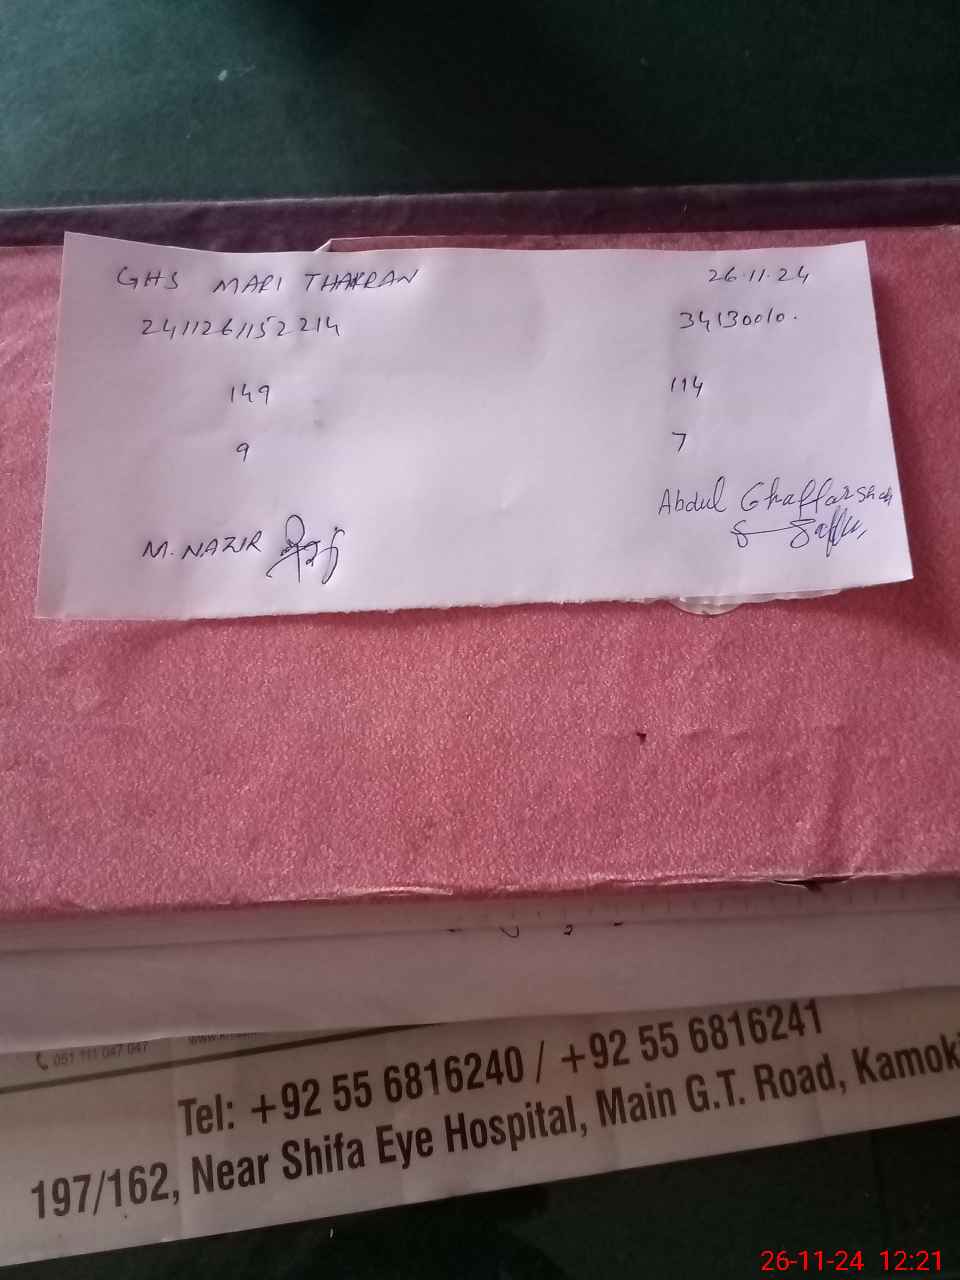 GHS MARI THAKRAN 26.11.24
2411261152214 34130010.
149 114
9 7
Abdul Ghaffar Shah
M. NAZIR
051 111 047 047
Tel: +92 55 6816240 / +92 55 6816241
197/162, Near Shifa Eye Hospital, Main G.T. Road, Kamoki
26-11-24 12:21